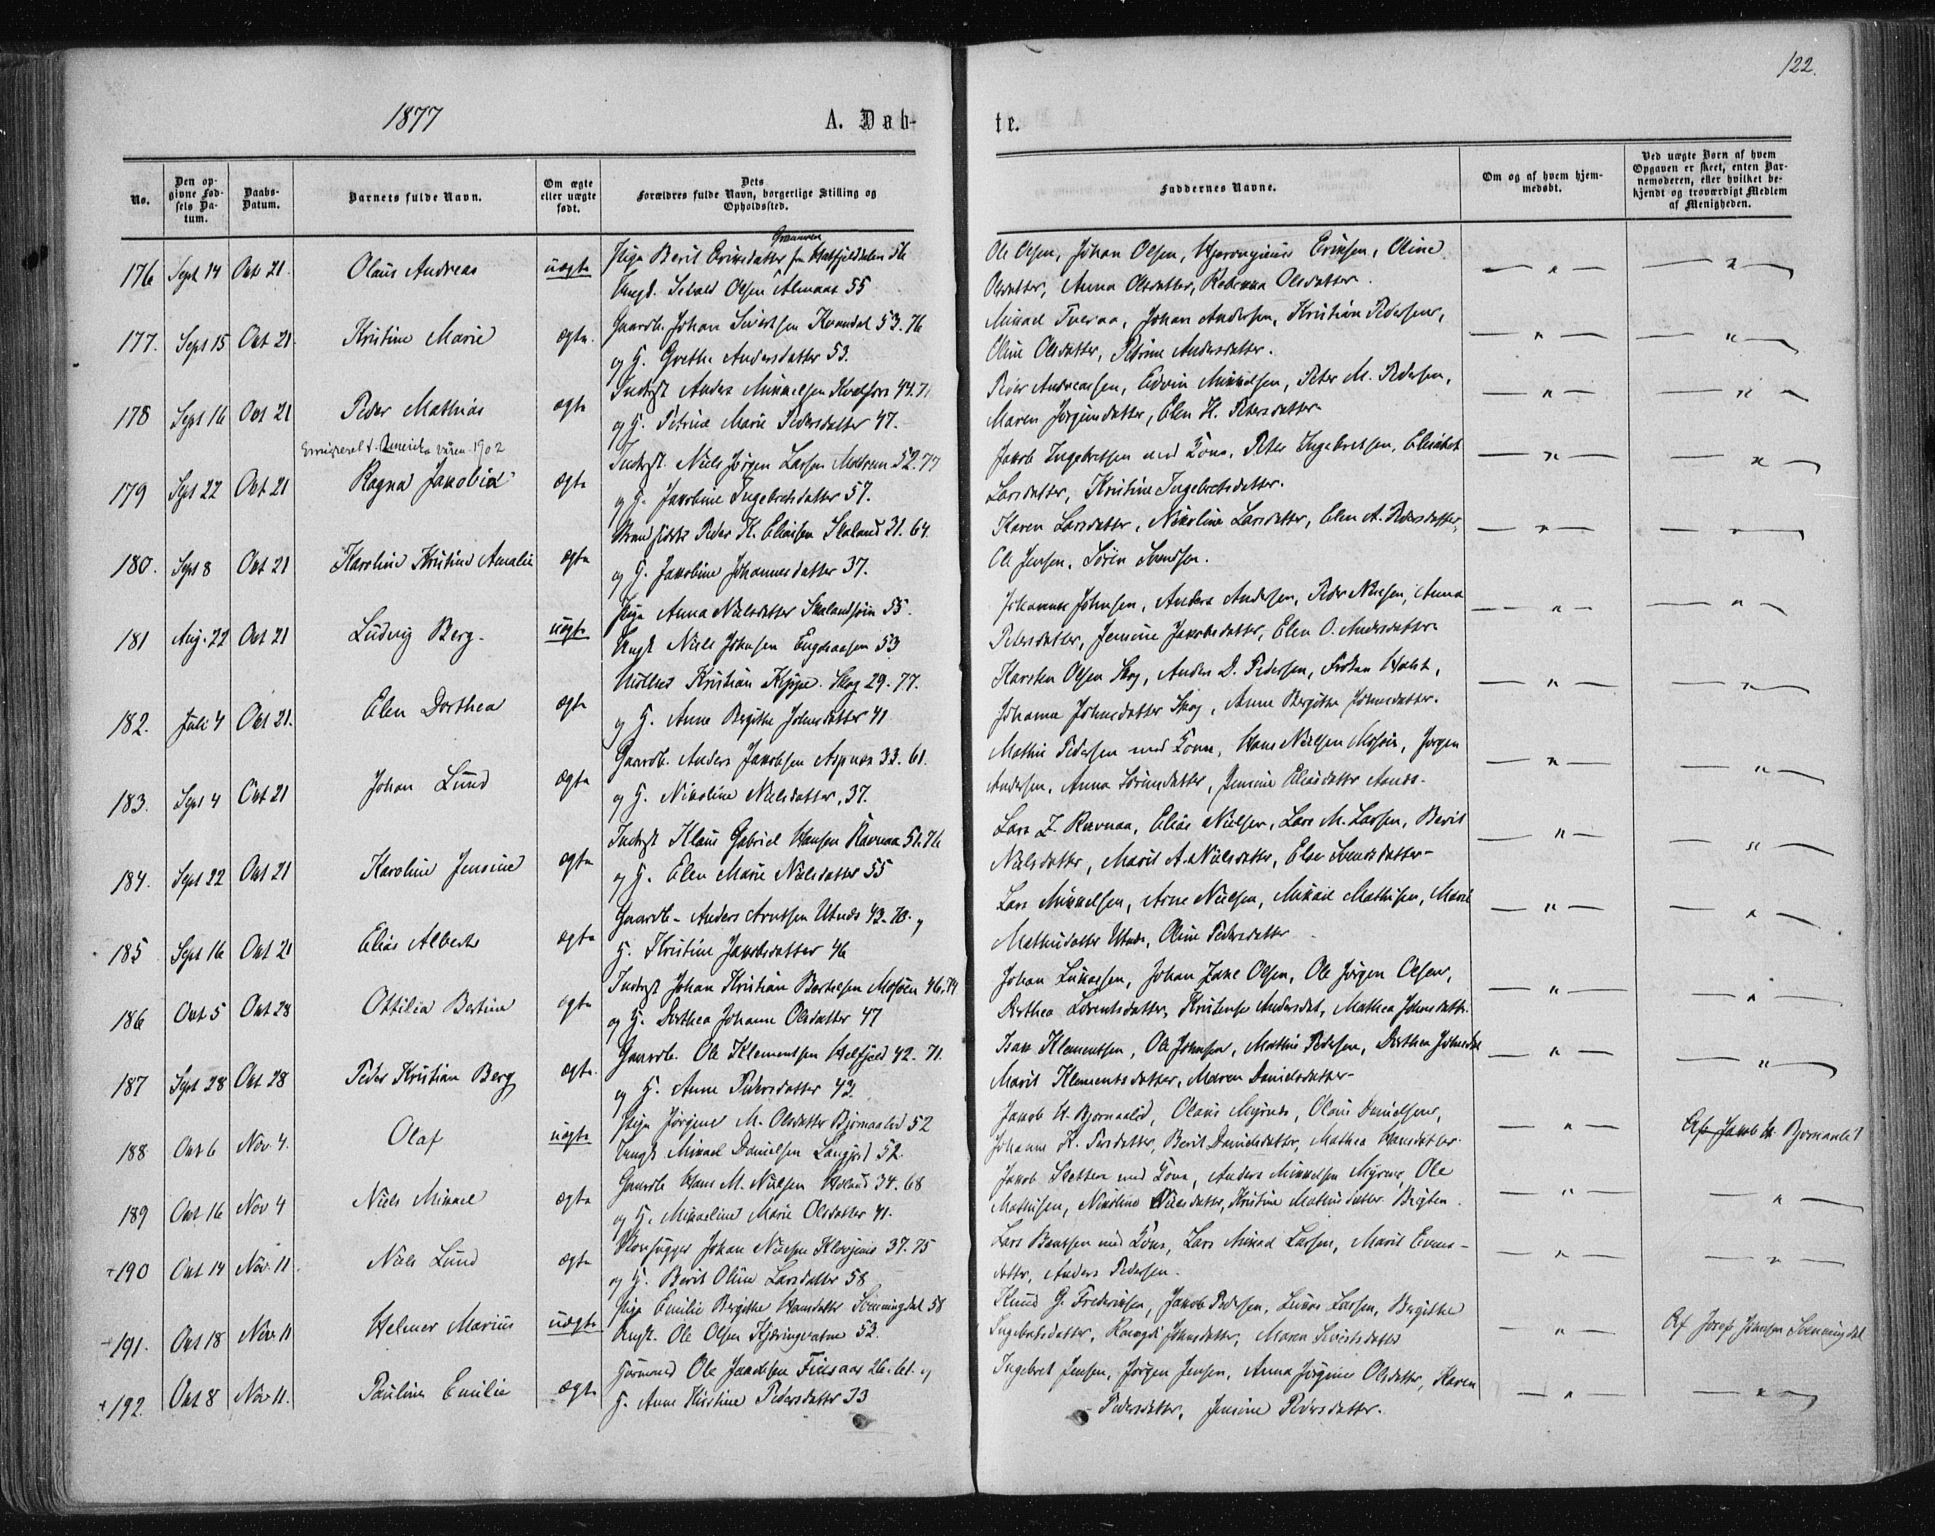 122.
1877
A. Døb-
te.
No.
Den opgivne Fødsels Datum.
Daabs-Datum.
Barnets fulde Navn.
Om ægte eller uægte født.
Dets Forældres fulde Navn, borgerlige Stilling og Opholdssted.
Faddernes Navne.
Om og af hvem hjemmedøbt.
Ved uægte Børn af hvem Opgaven er skeet, enten Barnemoderen, eller hvilket bekjendt og troværdigt Medlem af Menigheden.
176 Sept 14 Oct 21. Olaus Andreas uægte Pige Berit Eriksdatter fra Hatfjelddalen 56
Ungk. Olsen Almaas 55
Ole Olsen, Johan Olsen, Eriksen, Oline
Olsdatter, Anna Olsdatter, Olsdatter.
177. Sept 15 Oct 21. Kristine Marie ægte. Gaardb. Johan Sivertsen Kvandal 53. 76
og H. Grethe Andersdatter 53.
Mikael Tveraa, Johan Andersen, Kristian Pedersen,
Oline Olsdatter, Petrine Andersdatter.
178 Sept 16 Oct 21 Peder Mathias ægte Inderst Anders Mikkelsen Kvalfors 44. 71
og H. Petrine Marie Pedersdatter 47.
Peder Andreassen, Edvin Mikkelsen, Peter M. Pedersen,
Maren Jørginsdatter, Elen H. Petersdatter.
Emigreret t. Amerika våren 1902
179 Sept 22 Oct 21 Ragna Jakobia ægte Inderst. Niels Jørgen Larsen 52. 77
og H. Jakobine Ingebretsdatter 57.
Jakob Ingebretsen med Kone, Peter Ingebretsen, Elisabet
Larsdatter, Kristine Ingebretsdatter.
180. Sept 8 Oct 21 Karoline Kristine Amalie ægte Strandsidder Peder K. Eliasen Skaland 31. 64
og H. Jakobine Johannesdatter 37.
Karen Larsdatter, Nikoline Larsdatter, Elen A. Pedersdatter,
Ole Jensen, Søren Svendsen.
181 Aug. 22 Oct 21 Ludvig Berg. uægte Pige Anna Nielsdatter 55.
Ungk Niels Johnsen Engdraasen 53
Johannes Johnsen, Anders Andersen, Peder Nielsen, Anna
Petersdatter, Jensine Jakobsdatter, Elen O. Andersdatter.
182. Juli 4 Oct 21. Elen Dorthea ægte Møller Kristian Skog 29. 77.
og H. Anne Bergithe Johnsdatter 41
Karsten Olsen Skog, Anders D. Pedersen, Holst,
Johanna Johnsdatter Skog, Anne Bergitte Johnsdatter.
183. Sept 4 Oct 21 Johan Lund ægte Gaardb. Anders Jakobsen Aspnes 33. 61.
og H. Nikoline Nielsdatter, 37.
Mathis Pedersen med Kone, Hans Nielsen Mosjøen, Jørgen
Andersen, Anna Sørensdatter, Jensine Eliasdatter
184. Sept 22 Oct 21 Karoline Jensine ægte Inderst Klaus Gabriel Hansen Ravnaa 51. 76
og H. Elen Marie Nielsdatter 55
Lars Z. Ravnaa, Elias Nielsen, Lars M. Larsen, Berit
Nielsdatter, Marit A. Nielsdatter, Else Svendsdatter.
185 Sept 16 Oct 21 Elias Alberts ægte Gaardb. Anders Arntsen Utnes 43. 70. og
H. Kristine Jakobsdatter 46
Lars Mikkelsen, Arne Nielsen, Mikael Mathisen, Marit
Mathisdatter Utnes, Oline Pedersdatter
186 Oct 5 Oct 28 Ottilia Bertine ægte Inderst Johan Kristian Bertelsen Mosjøen 46. 74
og H. Dorthea Johanne Olsdatter 47
Johan Lukassen, Johan Zakr Olsen, Ole Jørgen Olsen,
Dorthea Lorentsdatter, Kristense Andersdat, Mathea Johnsdattr.
187 Sept 28 Oct 28 Peder Kristian Berg ægte. Gaardb. Ole Klementsen Helfjeld 42. 71.
og H. Anne Pedersdatter 42.
Isak Klementsen, Ole Johnsen, Mathis Pedersen, Dorthea Johnsdat
Marit Klementsdatter, Maren Danielsdatter.
188 Oct 6 Nov 4. Olaf uægte Pige Jørgine M. Olsdatter Bjørnaalid 52
Ungk Mikael Danielsen 52.
Jakob H. Bjørnaalid, Olaus Myrnes, Olaus Danielsen,
Johanna K. datter, Berit Danielsdatter, Mathea Hansdatter.
Af Jakob H. Bjørnaalid
189 Oct 16 Nov 4 Niels Mikael ægte Gaardb Hans M. Nielsen Holand 34. 68
og H. Mikaeline Marie Olsdatter 41.
Jakob Sletten med Kone, Anders Mikkelsen Myrnes, Ole
Mathisen, Nikoline Nielsdatter, Kristine Mathisdatter.
+190 Oct 14 Nov. 11. Niels Lund ægte Johan Nielsen 37. 75
og H. Berit Oline Larsdatter 58
Lars Bentsen med Kone, Lars Mikael Larsen, Marit Evens-
datter, Anders Pedersen.
+191. Oct 18 Nov 11 Helmer Marius uægte Pige Emilie Bergitte Hansdatter Svenningdal 58
Ungk. Ole Olsen Kjæringvatne 53.
Knud G. Fredriksen, Jakob Pedersen, Lukas Larsen, Bergitte
Ingebretsdatter, Johnsdatter, Maren Sivertsdatter
Af Josef Johnsen Svenningdal
+192. Oct 8 Nov. 11. Pauline Emilie ægte. Ole Jakobsen 26. 61. og
H. Anne Kirstine Pedersdatter 33
Ingebret Jensen, Jørgen Jensen, Anna Jørgine Olsdatter, Karen
Pedersdatter, Jensine Pedersdatter.